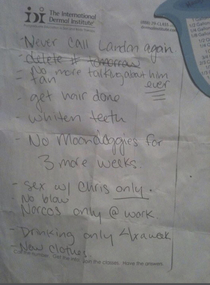 The International
Dermal Institute
- Never call Landon again
- delete #
- No more talking about him
- tan ever
- get hair done
- whiten teeth
- No Moondoggies for
3 more weeks.
- sex w/ Chris only.
No blow
- Narcos only @ work
- Drinking only 4x a week
- New clothes